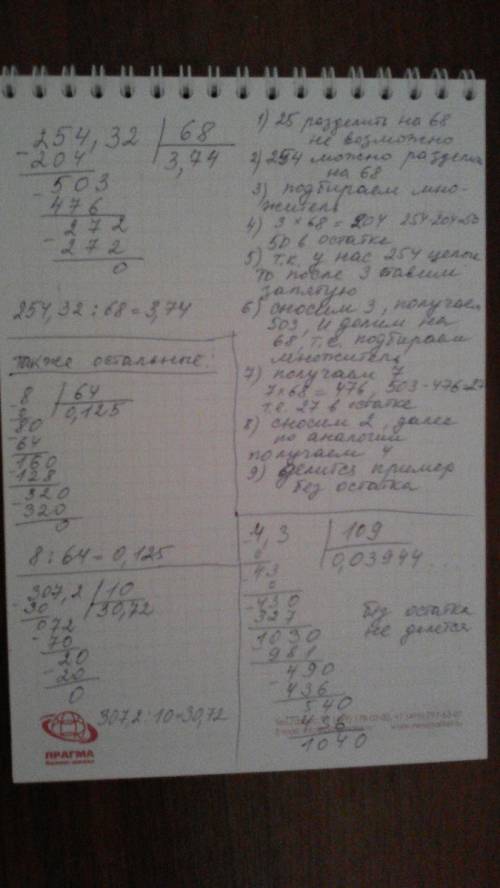 254,32 | 68
-204 3,74
-503
476
-272
-272
0
254,32 : 68 = 3,74
1) 25 разделить на 68
не возможно
2) 254 можно разделить
на 68
3) подбираем мно-
житель
4) 3 × 68 = 204 254-204=50
50 в остатке
5) т.к. у нас 254 целое
то после 3 ставим
запятую
6) сносим 3, получаем
503, и делим на
68, т.е. подбираем
множитель
7) получаем 7
7×68 = 476, 503-476=27
т.е. 27 в остатке
8) сносим 2, далее
по аналогии
получаем 4
9) делится пример
без остатка
также остальные:
-8 | 64
0 0,125
-80
-64
-160
-128
-320
-320
0
8 : 64 = 0,125
307,2 | 10
-30 30,72
072
-70
-20
-20
0
307,2 : 10 = 30,72
-4,3 | 109
0 0,03944...
-43
0
-430
327
-1030
981
-490
-436
540
436
1040
без остатка
не делется
ПРАГМА